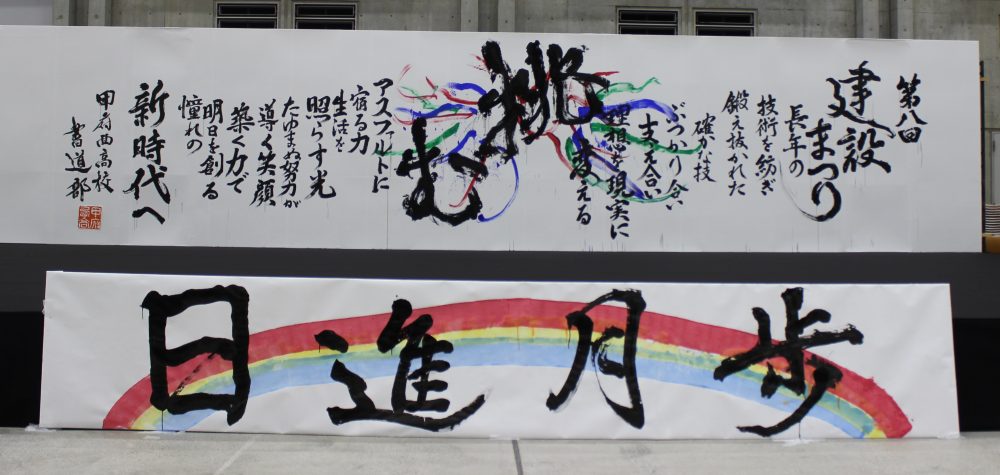 第八回
建設
まつり
長年の
技術を紡ぎ
鍛え抜かれた
確かな技
ぶつかり合い
支え合い
理想を現実に
変える
挑む
アスファルトに
宿る力
生活を
照らす光
たゆまぬ努力が
導く笑顔
築く力で
明日を創る
憧れの
新時代へ
甲府西高校
書道部
日進月歩